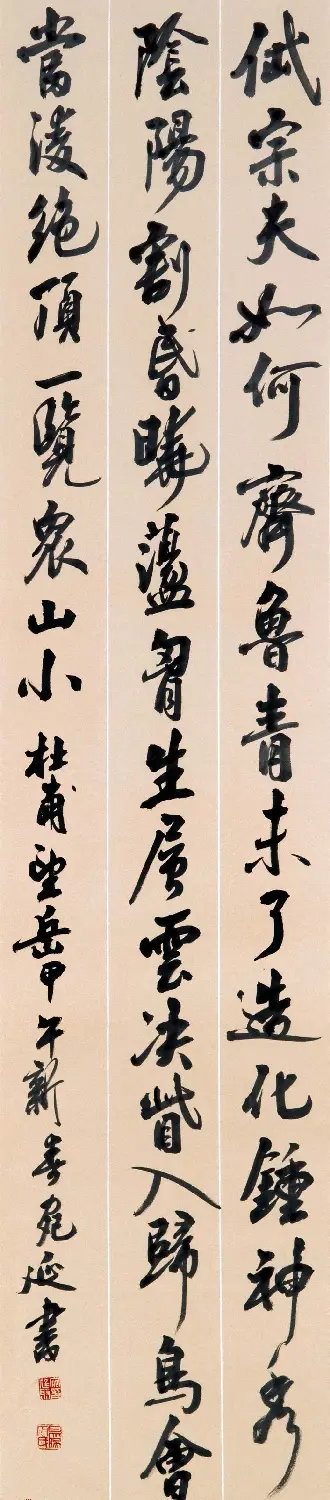 岱宗夫如何齊魯青未了造化鍾神秀
陰陽割昏曉蕩胷生層雲决眥入歸鳥會
當凌絕頂一覽衆山小 杜甫望岳甲午新春宛延書